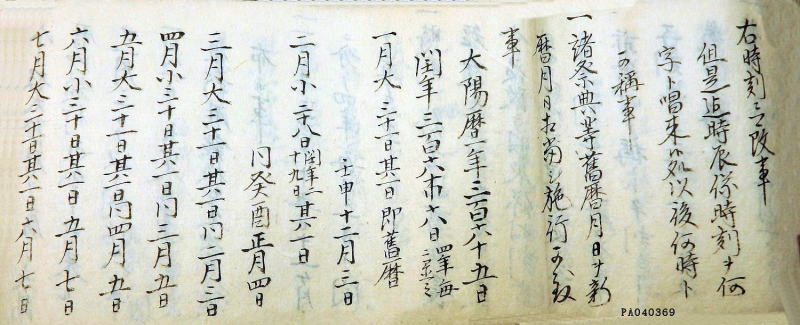 右時刻ニ改事
但是迄時辰儀時刻ヲ何
字ト唱来候処以後何時ト
可称事
一諸祭典等舊暦月日ヲ新
暦月日相当シ施行可致
事
太陽暦一年三百六十五日
閏年三百六十六日四年毎ニ置之
一月大三十一日其一日即舊暦
壬申十二月三日
二月小二十八日閏年二十九日其一日
同癸酉正月四日
三月大三十一日其一日同二月三日
四月小三十日其一日同三月五日
五月大三十一日其一日同四月五日
六月小三十日其一日五月七日
七月大三十一日其一日六月七日
PA040369